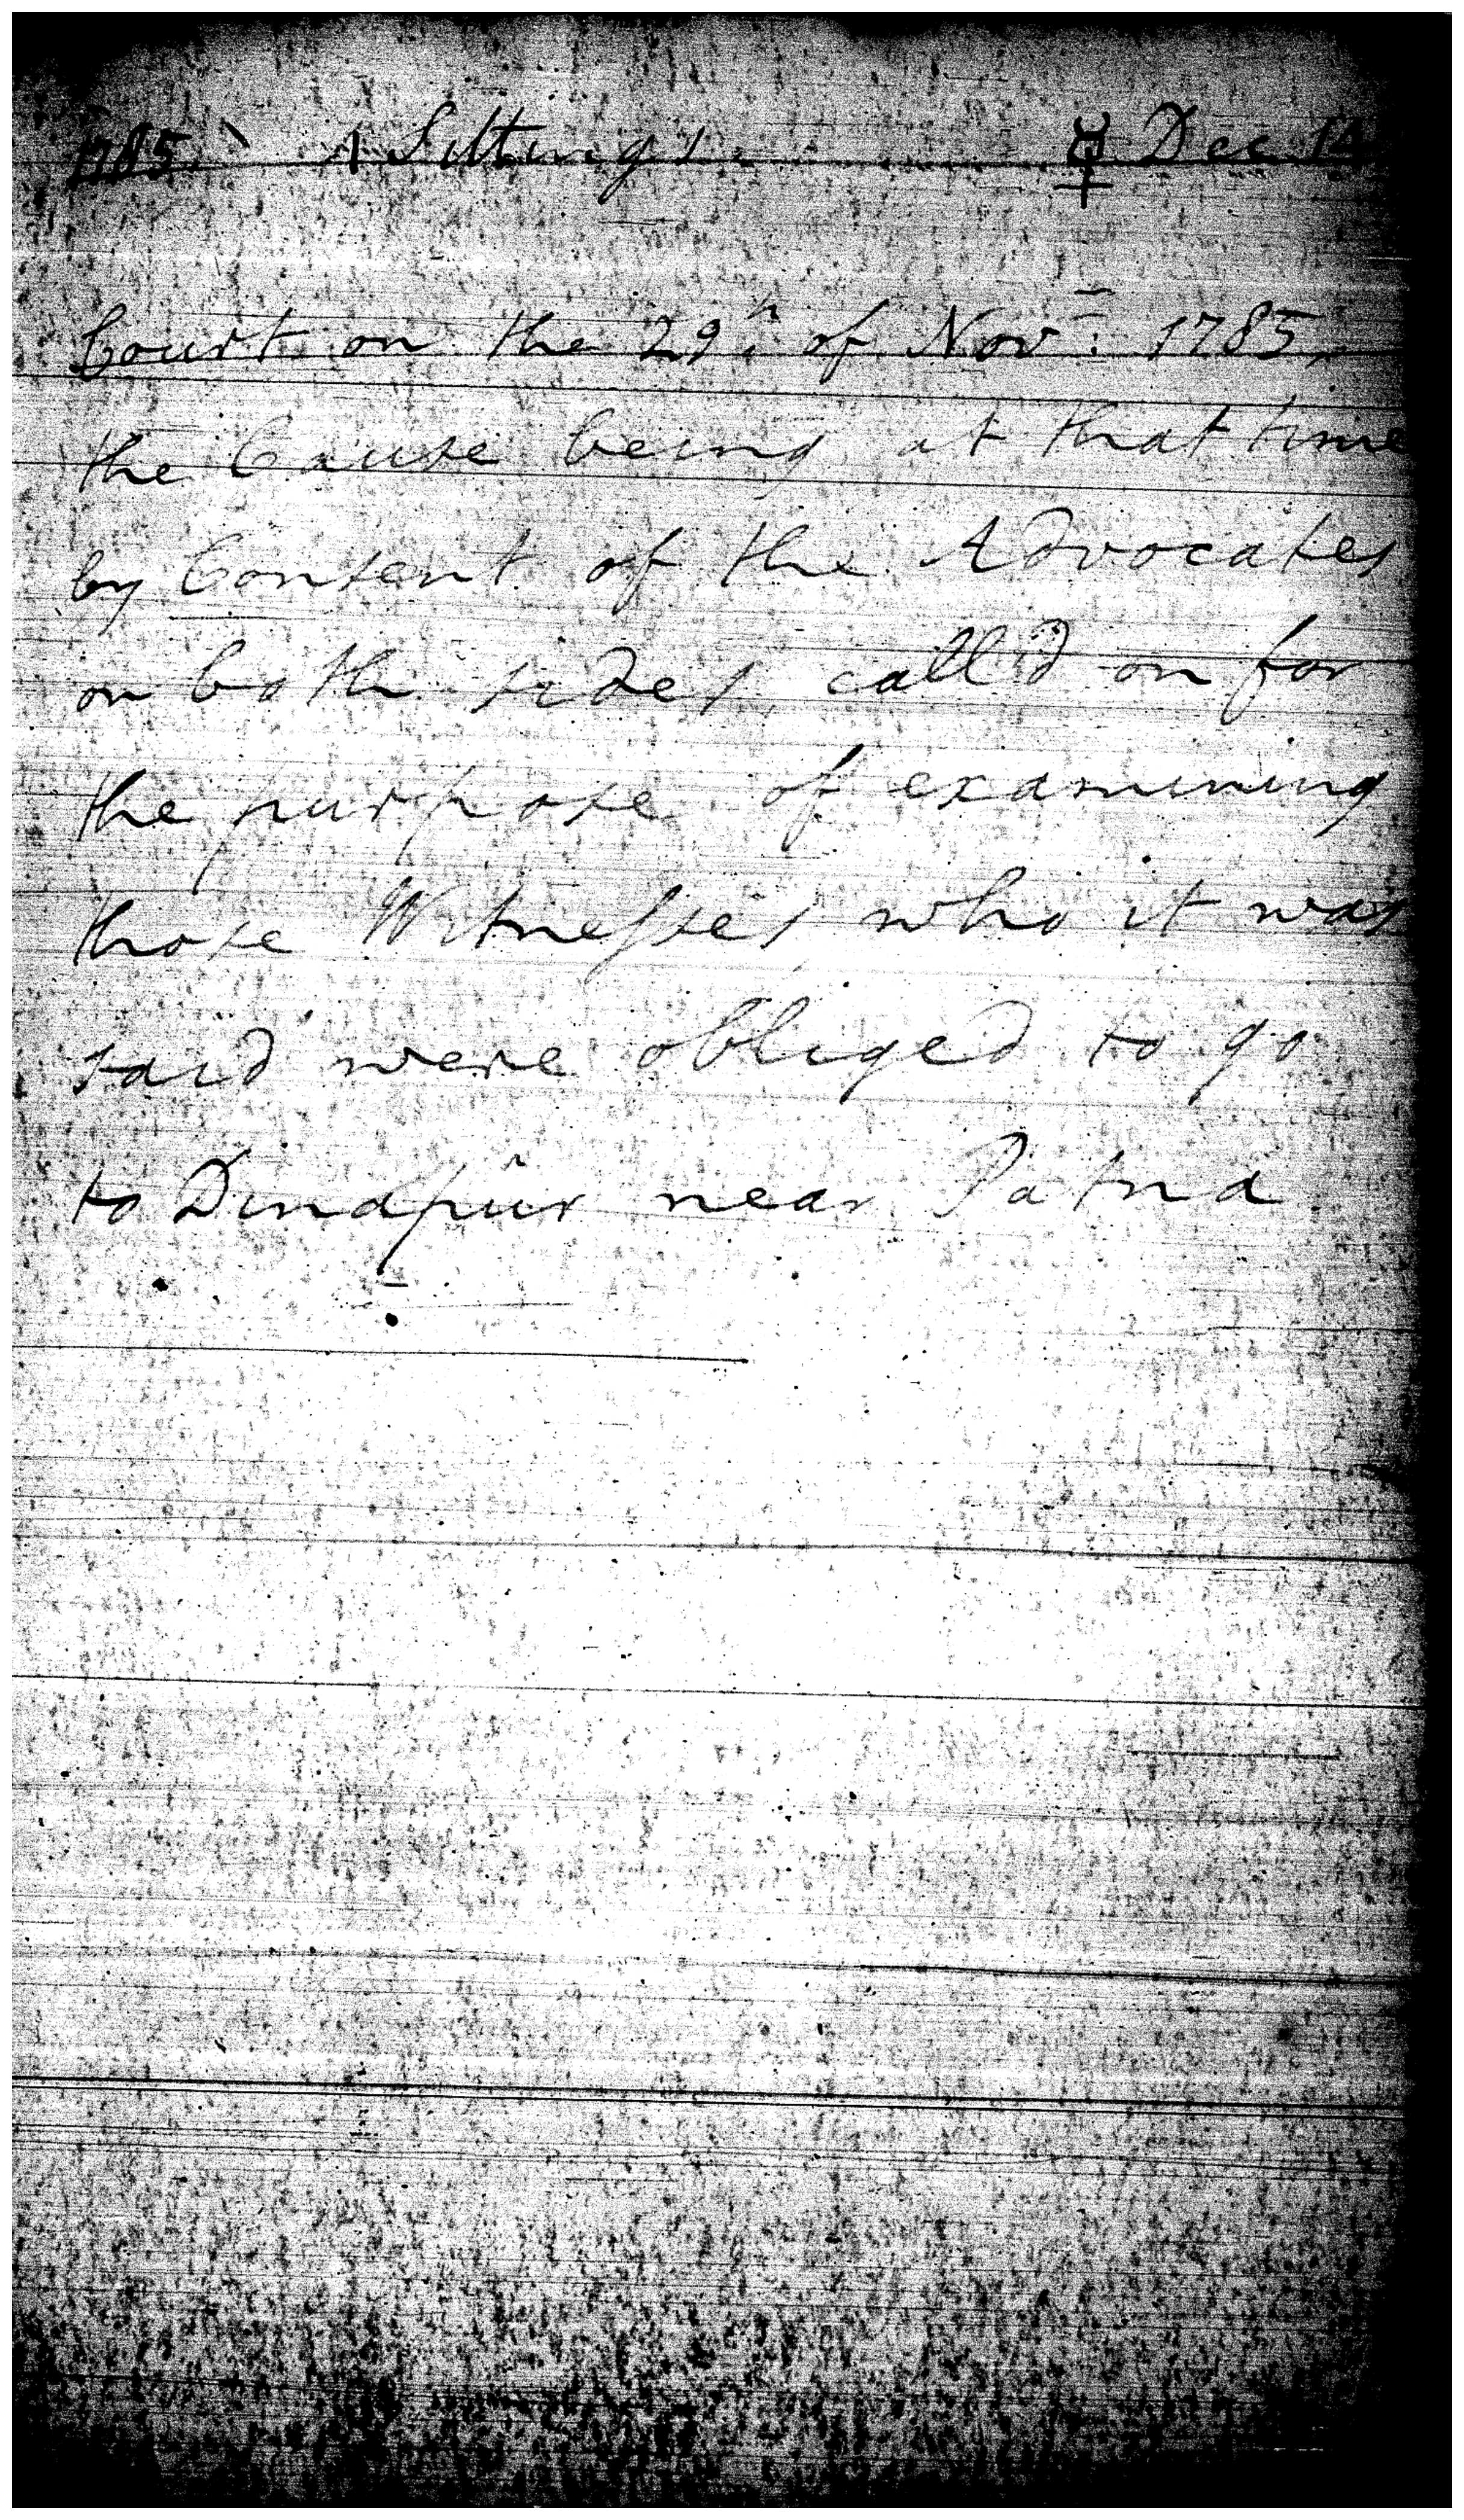 1785. Sittings ☿ Dec 14
Court on the 29th of Novr: 1785,
the Cause being at that time
by Consent of the Advocates
on both sides call'd on for
the purpose of examining
those Witnesses who it was
said were obliged to go
to Dinapûr near Patna